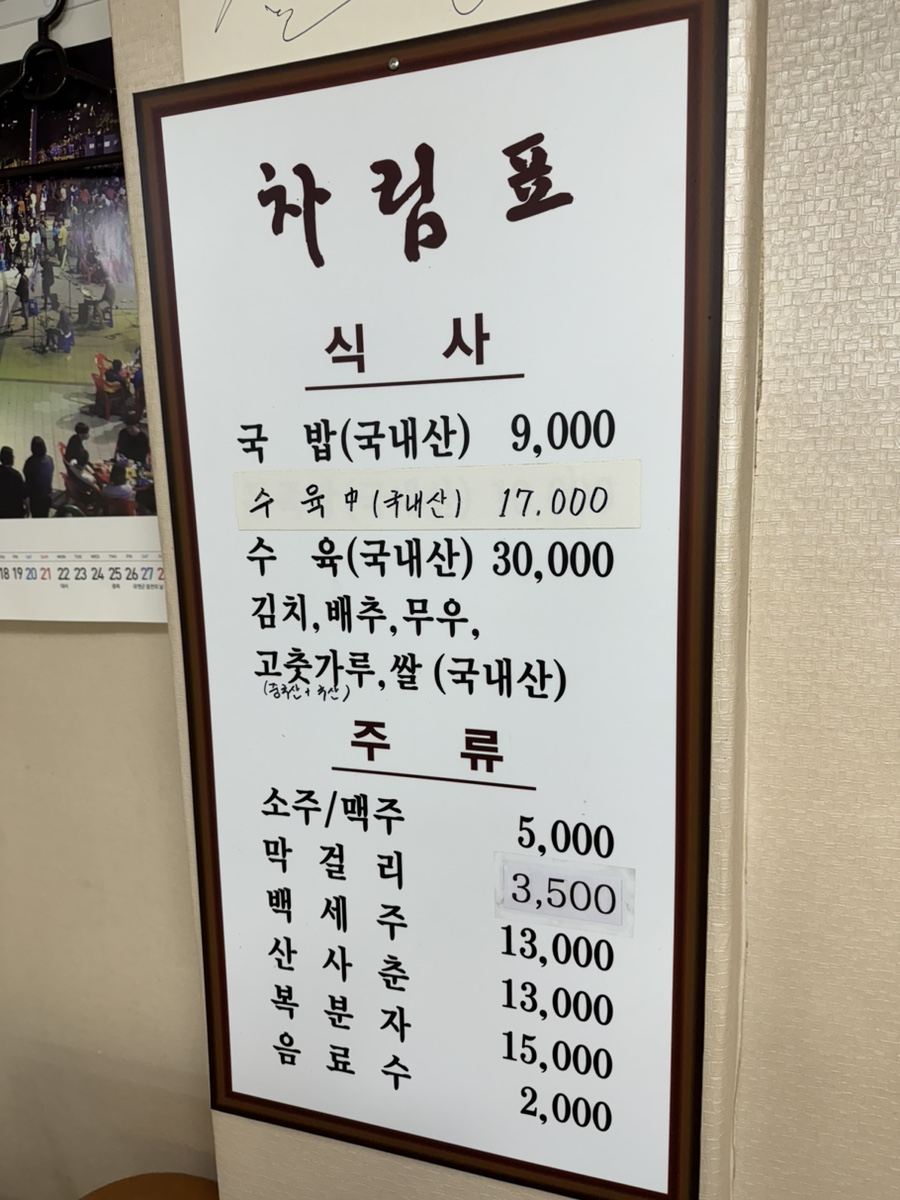 차림표
식 사
국 밥(국내산) 9,000
수 육 中 (국내산) 17.000
수 육(국내산) 30,000
김치,배추,무우,
고춧가루,쌀 (국내산)
(중국산+국산)
주 류
소주/맥주 5,000
막 걸 리 3,500
백 세 주 13,000
산 사 춘 13,000
복 분 자 15,000
음 료 수 2,000
18 19 20 21 22 23 24 25 26 27